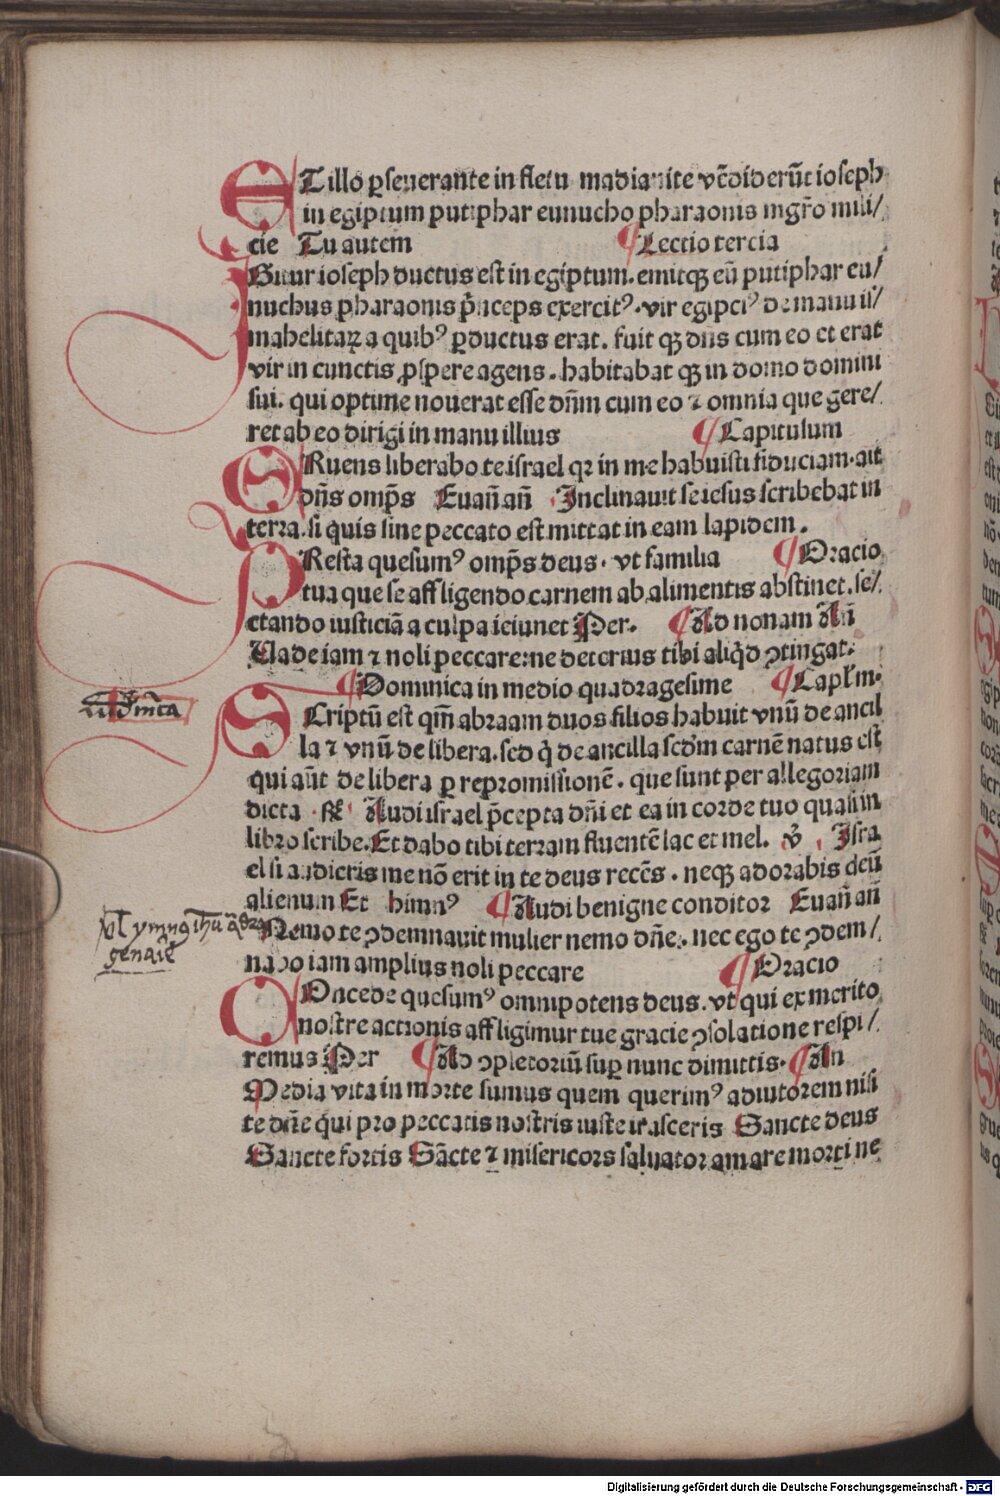 ETillo ꝑseuerante in fletu madianite vẽdiderũt ioseph
in egiptum putiphar eunucho pharaonis mgr̃o mili/
cie Tu autem ¶Lectio tercia
IGitur ioseph ductus est in egiptum. emitqꝫ eũ putiphar eu/
nuchus pharaonis p̃nceps exercitꝰ. vir egipciꝰ de manu is/
mahelitaꝝ a quibꝰ ꝑductus erat. fuit qꝫ dns cum eo et erat
vir in cunctis ꝓspere agens. habitabat qꝫ in domo domini
sui. qui optime nouerat esse dñm cum eo ⁊ omnia que gere/
ret ab eo dirigi in manu illius ¶Capitulum
ERuens liberabo te israel qꝛ in me habuisti fiduciam. ait
dñs omp̃s Euañ añ Inclinauit se iesus scribebat in
terra. si quis sine peccato est mittat in eam lapidem.
PResta quesumꝰ omp̃s deus. vt familia ¶Oracio
tua que se affligendo carnem ab alimentis abstinet. se/
ctando iusticiã a culpa ieiunet Per. ¶Ad nonam Añ
Vade iam ⁊ noli peccare: ne deterius tibi aliq̃d ꝯtingat.
¶Dominica in medio quadragesime ¶Capłm.
SCriptũ est qm̃ abraam duos filios habuit vnũ de ancil
la ⁊ vnũ de libera. sed q̃ de ancilla scd'm carnẽ natus est
qui aũt de libera ꝑ repromissionẽ. que sunt per allegoriam
dicta R̃ Audi israel p̃cepta dñi et ea in corde tuo quasi in
libro scribe. Et dabo tibi terram fluentẽ lac et mel. v̉ Isra
el si audieris me nõ erit in te deus recẽs. neqꝫ adorabis deũ
alienum Et himnꝰ ¶Audi benigne conditor Euañ añ
Nemo te ꝯdemnauit mulier nemo dñe. nec ego te ꝯdem/
nabo iam amplius noli peccare ¶Oracio
COncede quesumꝰ omnipotens deus. vt qui ex merito
nostre actionis affligimur tue gracie ꝯsolatione respi/
remus Per ¶Ad ꝯpletoriũ suꝑ nunc dimittis. ¶An
Media vita in morte sumus quem querimꝰ adiutorem nisi
te dñe qui pro peccatis nostris iuste irasceris Sancte deus
Sancte fortis Sãcte ⁊ misericors saluator amare morti ne
Digitalisierung gefördert durch die Deutsche Forschungsgemeinschaft - DFG